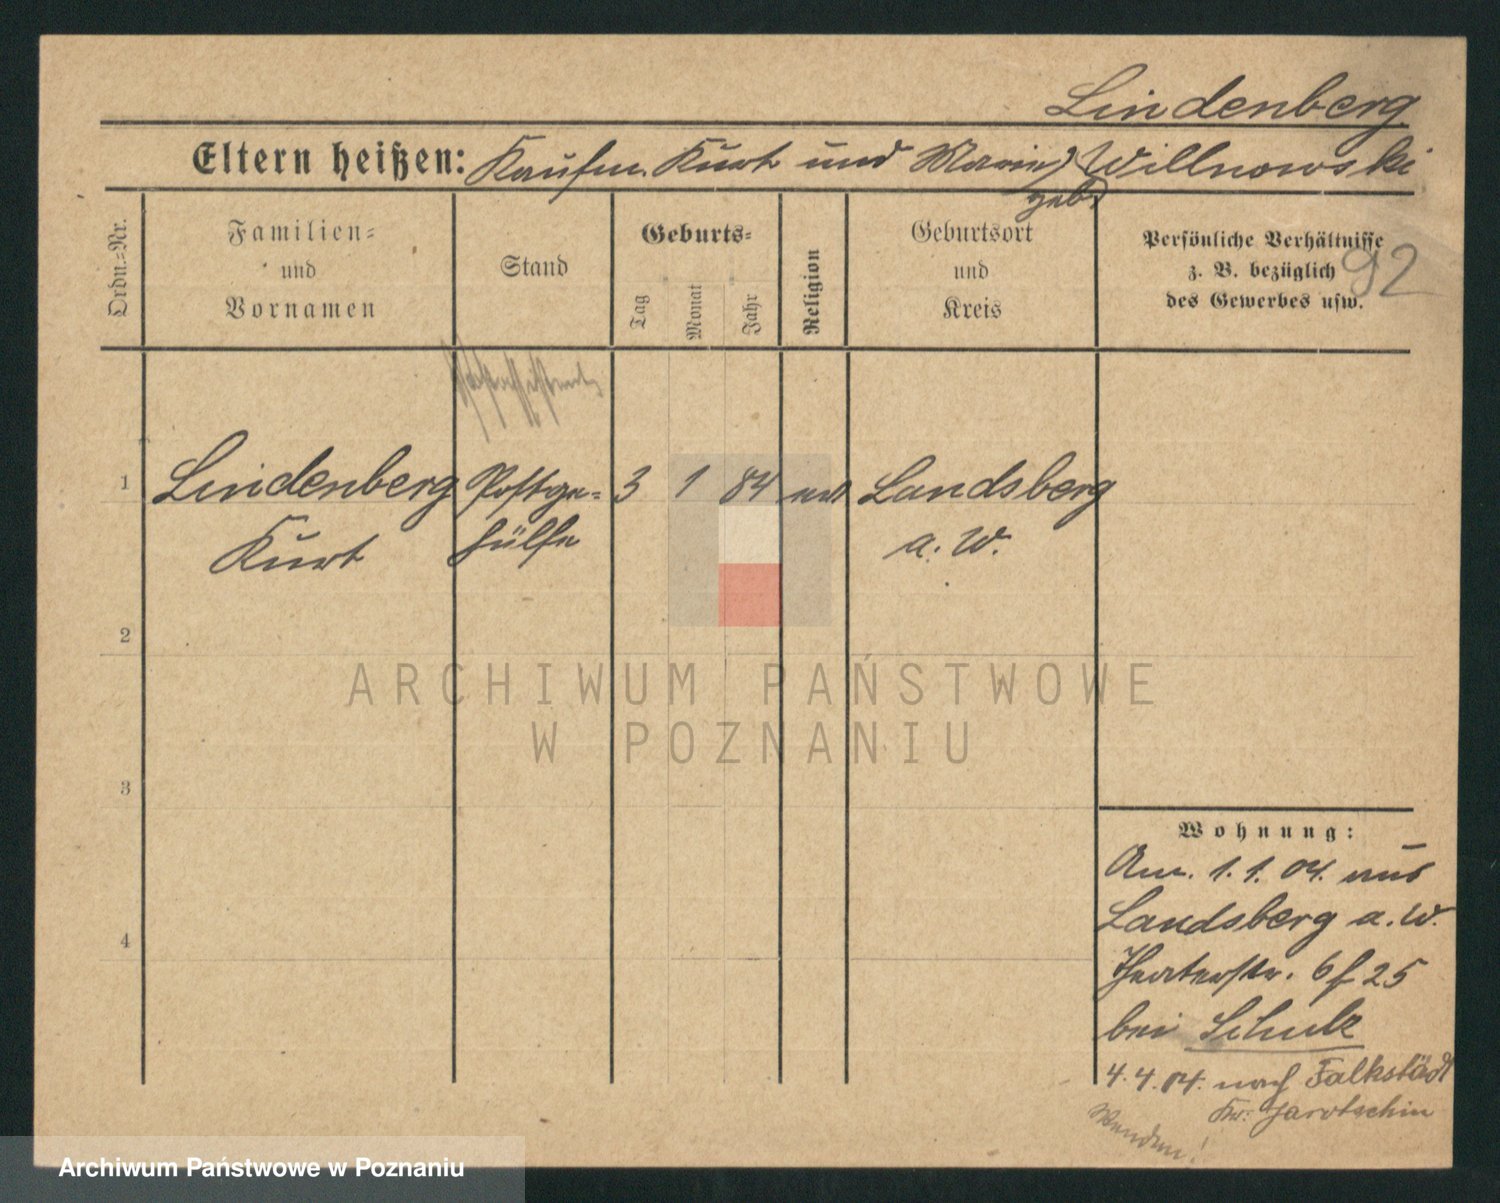 Lindenberg
Eltern heißen: Kaufm. Kurt und Marie geb. Willnowski
Ordn.=Nr.
Familien=
und
Vornamen
Stand
Geburts=
Tag
Monat
Jahr
Religion
Geburtsort
und
Kreis
Persönliche Verhältnisse
z. B. bezüglich
des Gewerbes usw.
92
1 Lindenberg Postge= 3 1 84 Landsberg
Kurt hülfe a. W.
2
3
4
ARCHIWUM PAŃSTWOWE
W POZNANIU
Wohnung:
Am. 1.1.04. aus
Landsberg a. W.
Theaterstr. 6 25
bei Schulz
4.4.04. nach Falkstädt
Kr. Jarotschin
Wenden!
Archiwum Państwowe w Poznaniu